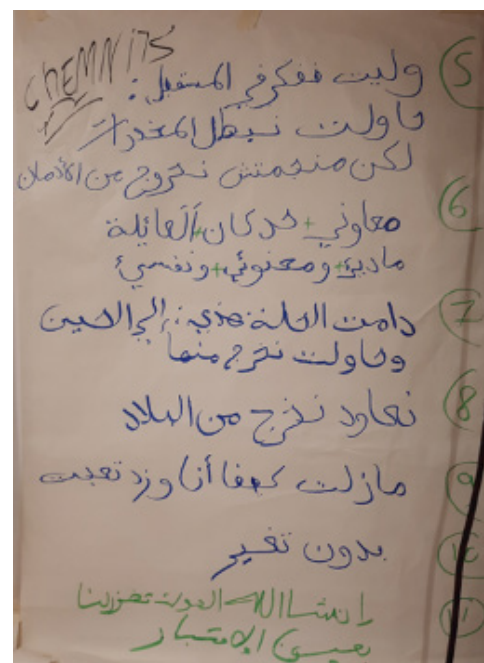 CHEMNITS
5 وليت نفكر في المستقبل:
حاولت نبطل المخدرات
لكن منجمتش نخروج من الأدمان
6 معاوني + حد كان + العائلة
مادي + ومعنوي + ونفسي
7 دامت الحلة هذي: إلي الحين
وحاولت نخرج منها
8 نعاود نخرج من البلاد
9 مازلت كيفا أنا وزد تعبت
10 بدون تغير
11 إنشا الله الدولة
بعين الإعتبار